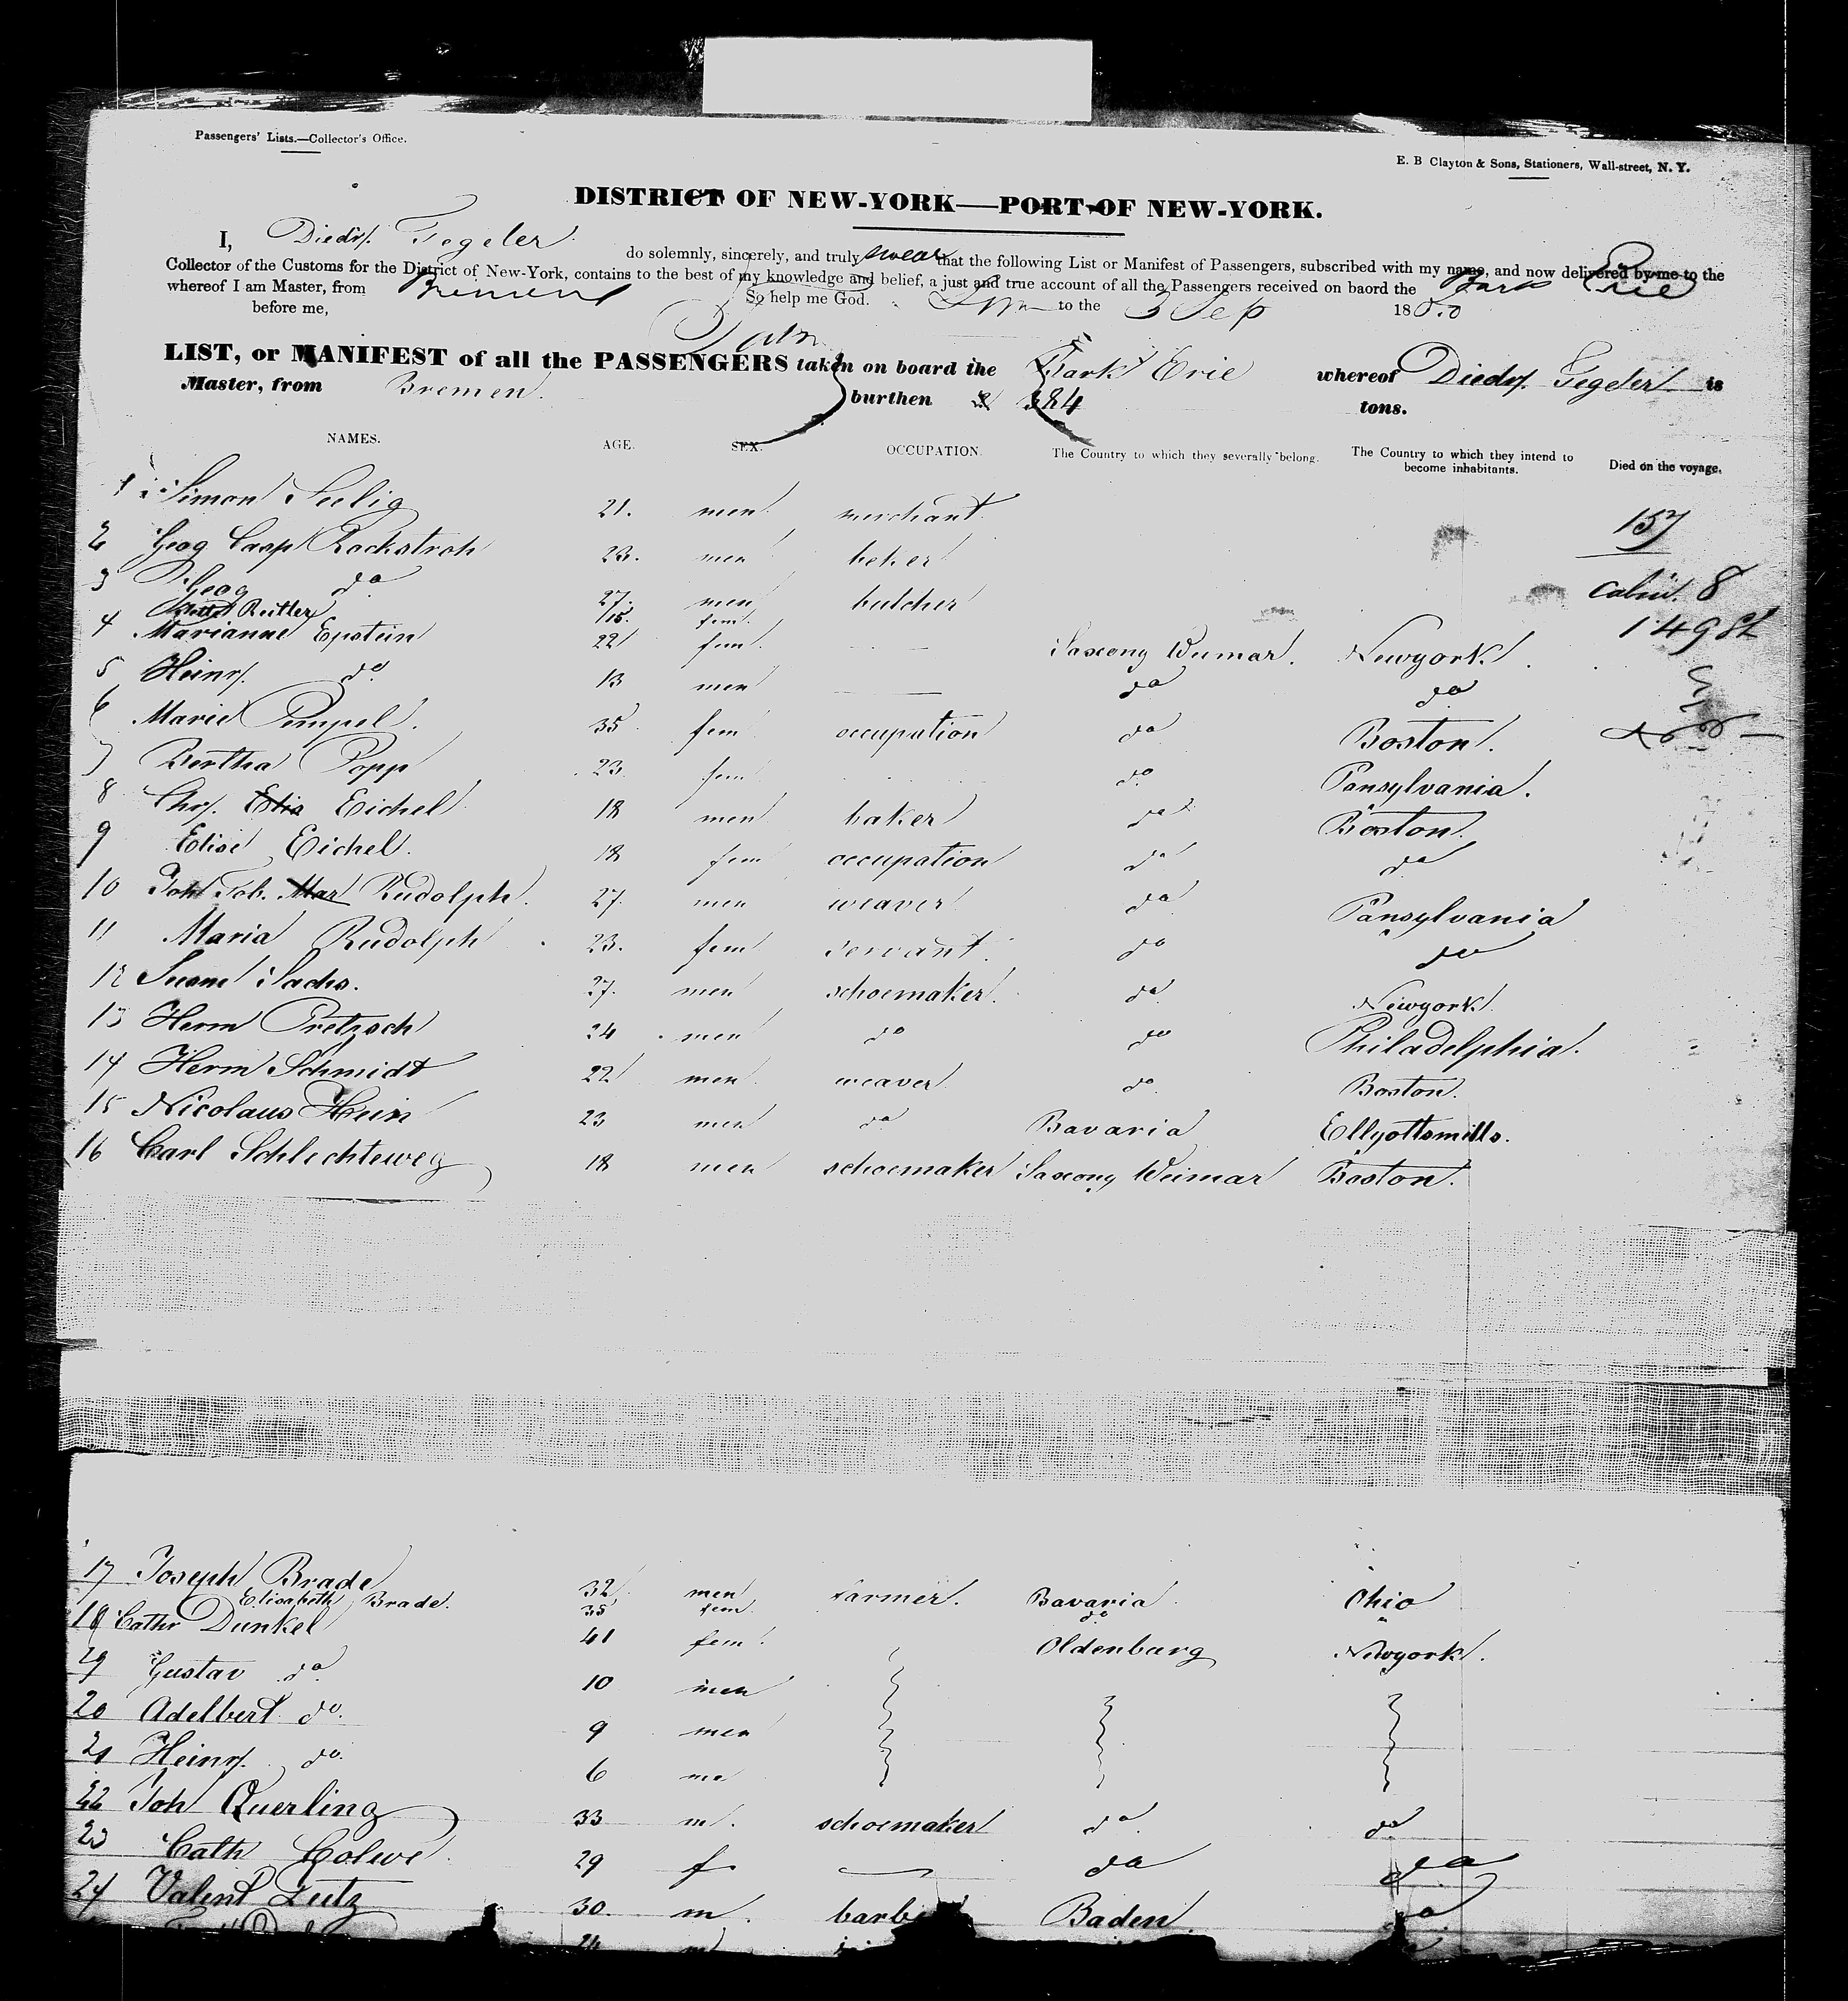 Passengers' Lists.—Collector's Office.
E. B Clayton & Sons, Stationers, Wall-street, N. Y.
DISTRICT OF NEW-YORK—PORT OF NEW-YORK.
I, Diedr. Tegeler do solemnly, sincerely, and truly swear that the following List or Manifest of Passengers, subscribed with my name, and now delivered by me to the
Collector of the Customs for the District of New-York, contains to the best of my knowledge and belief, a just and true account of all the Passengers received on baord the Bark Erie
whereof I am Master, from Bremen So help me God. to the 3 Sep 1850
before me,
LIST, or MANIFEST of all the PASSENGERS taken on board the Bark Erie whereof Diedr. Tegeler is
Master, from Bremen. burthen 384 tons.
NAMES. AGE. SEX. OCCUPATION. The Country to which they severally belong. The Country to which they intend to become inhabitants. Died on the voyage.
1 Simon Seelig 21. men merchant
157
2 Geog Casp Rockstroh 23. men beker
3 Georg do 27. men butcher
cabin. 8
Reitler fem.
149 St
4 Marianne Epstein 22 fem. Saxony Weimar. Newyork.
5 Heinr. do 13 men — do do
6 Marie Pempel. 35 fem occupation do Boston.
7 Bertha Popp 23. fem do Pansylvania.
8 Chr. Elis Eichel 18 men baker do Boston.
9 Elise Eichel. 18 fem occupation do do
10 Joh Tob. Mar Rudolph. 27. men weaver do Pansylvania
11 Maria Rudolph 23. fem servant do do
12 Sachs. 27. men schoemaker. do Newyork.
13 Herm Pretzsch 24 men do do Philadelphia.
14 Herm Schmidt 22 men weaver do Boston.
15 Nicolaus Hein 23 men do Bavaria Ellyottsmills.
16 Carl Schlechteweg 18 men schoemaker Saxony Weimar Boston.
17 Joseph Brade 32 men farmer. Bavaria Ohio
Elisabeth Brade. 35 fem. do "
18 Cathr Dunkel 41 fem. Oldenburg Newyork.
19 Gustav do 10 men
20 Adelbert do. 9 men
21 Heinr. do. 6 me
22 Joh Querling 33 m. schoemaker do do
23 Cath Colwe 29 f — do do
24 Valent Zeitz 30. m. barbe Baden. do
24 m